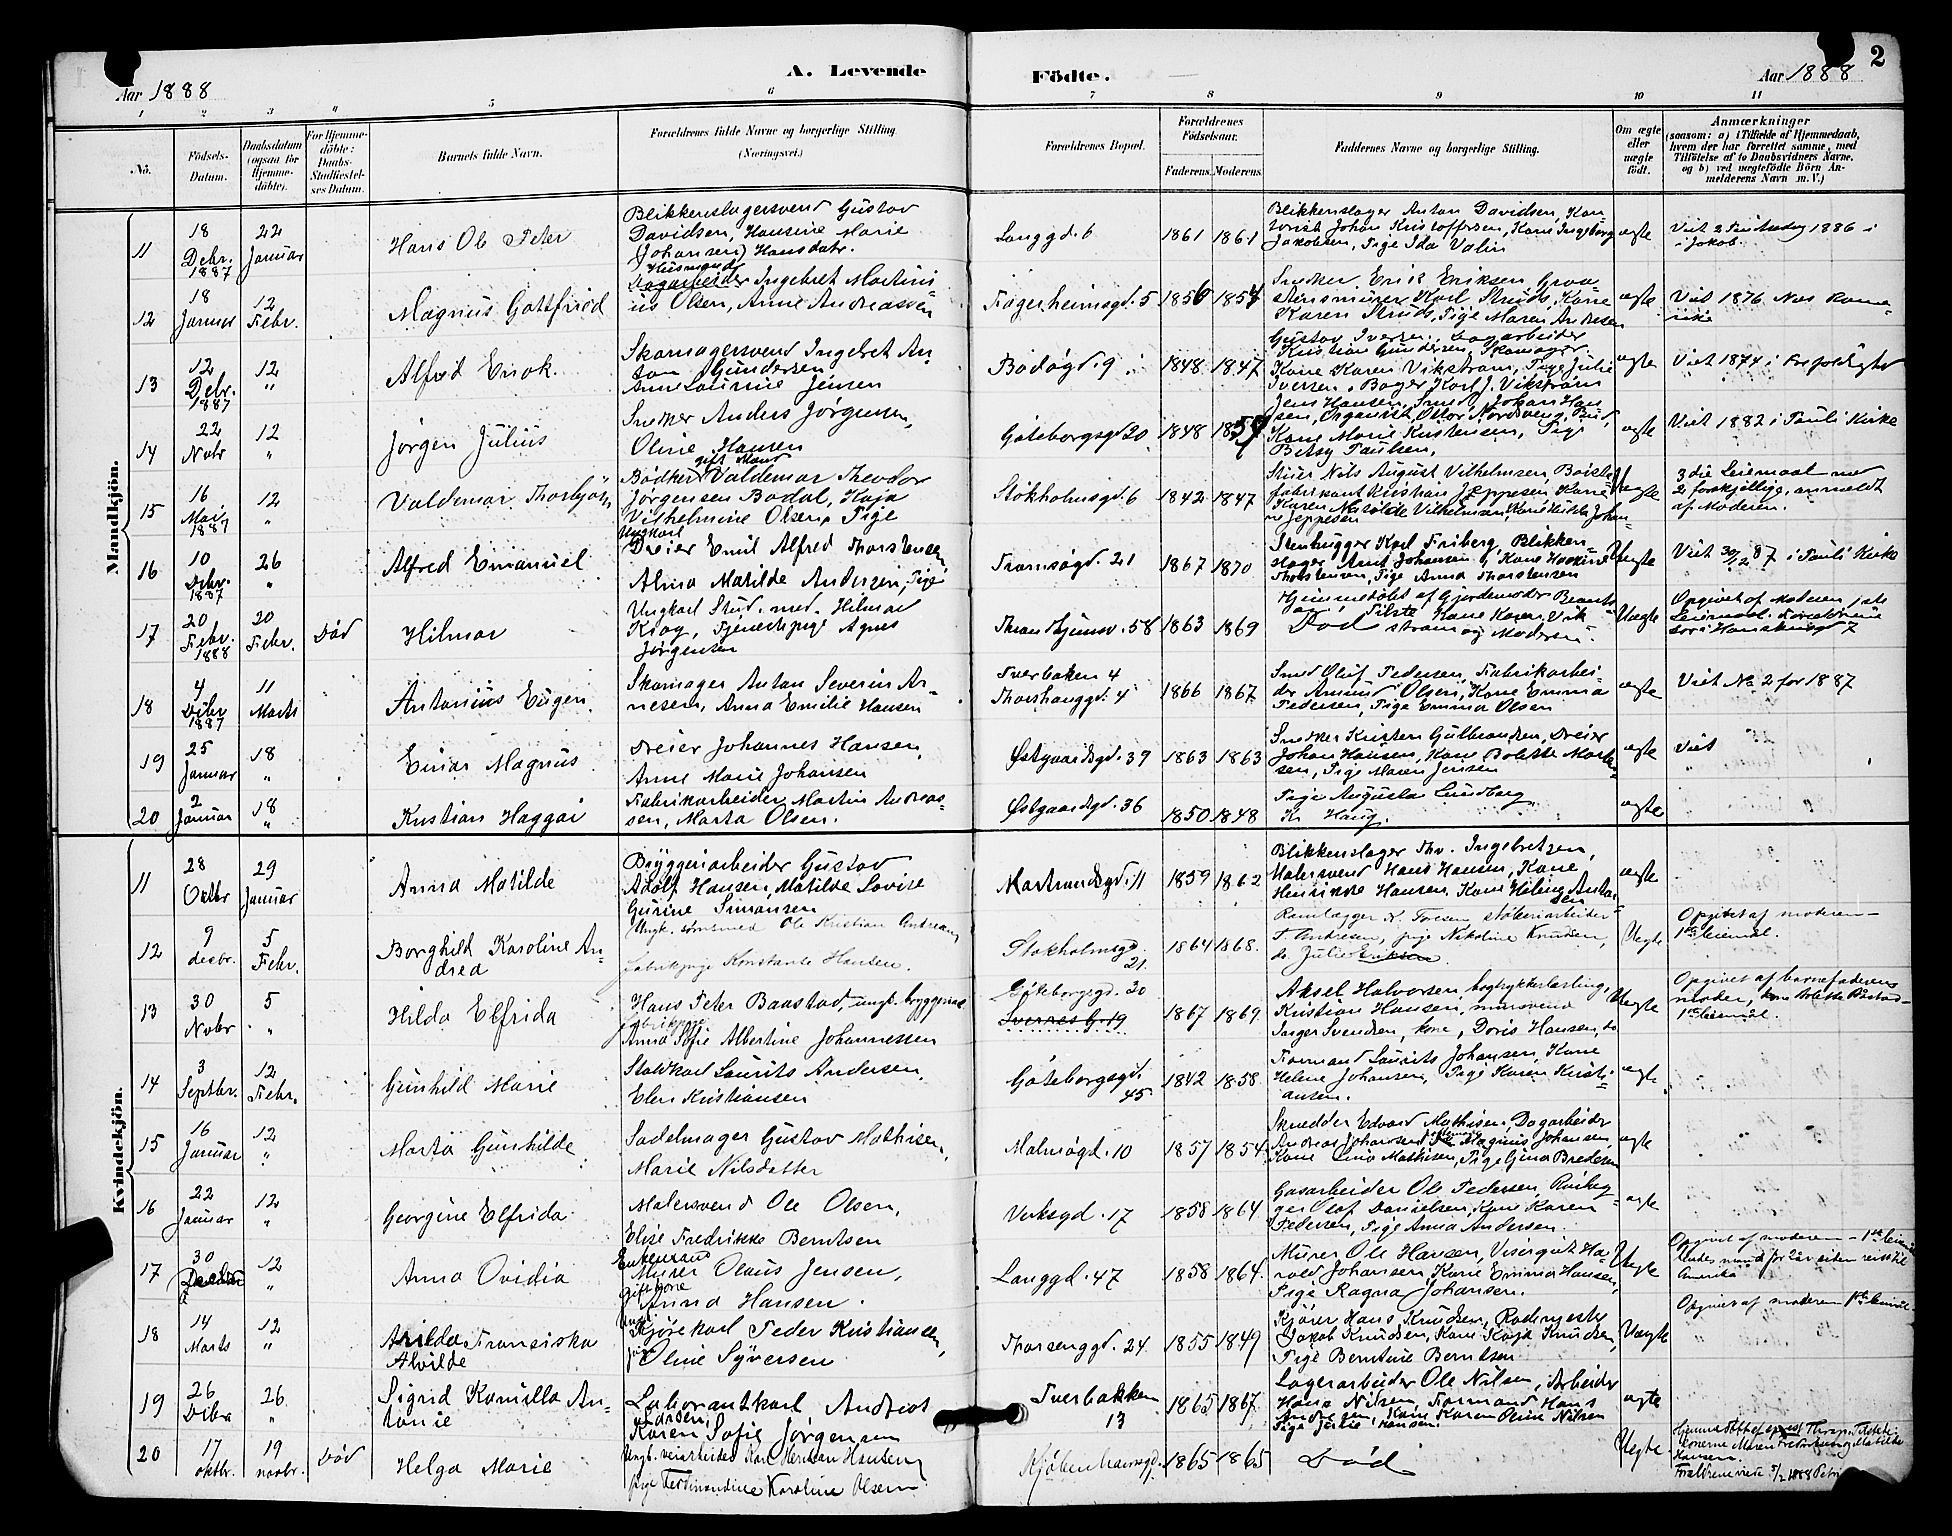 Aar 1888
A. Levende
Födte.
Aar 1888
2
1 2 3 4 5 6 7 8 9 10 11
No.
Födsels-Datum.
Daabsdatum (ogsaa för Hjemmedöbte).
For Hjemmedöbte: Daabs-Stadfæstelses Datum.
Barnets fulde Navn.
Forældrenes fulde Navne og borgerlige Stilling (Næringsvei.)
Forældrenes Bopæl.
Forældrenes Födselsaar.
Faderens. Moderens.
Faddernes Navne og borgerlige Stilling.
Om ægte eller uægte födt.
Anmærkninger
(saasom: a) i Tilfælde af Hjemmedaab, hvem der har forrettet samme, med Tilföielse af to Daabsvidners Navne, og b) ved uægtefödte Börn Anmelderens Navn m. V.)
Mandkjön.
11 18 Debr. 1887 22 Januar Hans Ole Peter
Blikkenslagersvend Gustav
Davidsen, Hansine Marie
(Johansen) Hansdatr.
Langgd. 6 1861 1861
Blikkenslager Anton Davidsen, Kontorist Johan Kristoffersen, Kone Ingeborg Jakobsen, Pige Ida Valin
ægte
12 18 Januar 12 Febr. Magnus Gottfried
Husmand
Dagarbeider Ingebret Martinius Olsen, Anne Andreassen
Fagerheimsgd. 5 1856 1854
Snedker Erik Eriksen, Graastensmurer Karl Strøds, Kone Karen Strøds, Pige Maren Andresen
ægte Viet 1876 Nes Romerike
13 12 Debr. 1887 12 " Alfred Enok.
Skomagersvend Ingebret Anton Gundersen
Anne Laurine Jensen
Bodøgd. 9 1848 1847
Gustav Iversen, Dagarbeider
Kristian Gundersen, Skomager
Kone Karen Vikstrøm, Pige Julie Iversen, Bager Karl J. Vikstrøm
ægte
14 22 Nobr 12 " Jørgen Julius
Snedker Anders Jørgensen,
Oline Hansen
Göteborgsgd 20 1848 1857
Jens Hansen, Smed, Johan Hansen, Organist, Ottor Nordsveng, Bud,
Kone Marie Kristensen, Pige
Betsy Paulsen,
ægte Viet 1882 i Pauli Kirke
15 16 Mai 1887 12 " Valdemar Thorbjørn
gift Mand
Bødker Valdemar Theodor
Jørgensen Bodal, Kaja
Vilhelmine Olsen, Pige
Stökholmsgd. 6 1842 1847
Nils August Vilhelmsen,
fabrikant Kristian Jeppesen, Kone
Karen Matilde Vilhelmsen,
Uægte
3die Leiermaal med
2 forskjellige, anmeldt
af Moderen.
16 10 Debr. 1887 26 " Alfred Emanuel
Ungkarl
Dreier Emil Alfred Thorstensen,
Alma Matilde Andersen, Pige
Tromsøgd. 21 1867 1870
Stenhugger Karl Friberg, Blikkenslager Aml Johansen, Kone
Thorstensen, Pige Anna Thorstensen
Uægte Viet 30/12 87 i Pauli Kirke
17 20 Febr. 1888 20 Febr. Död Hilmar
Ungkarl Stud. med. Hilmar
Krog, Tjenestepige Agnes
Jørgensen
Throndhjemsv. 58 1863 1869
Hjemmedøbt af Gjordemoder
Kone Karen Vikstrøm og Moderen
Død
Uægte
Opgivet af Moderen, 1ste
Leiermaal.
18 4 Debr 1887 11 Marts Antonius Eugen.
Skomager Anton Severin Arnesen, Anna Emilie Hansen
Tverbaken 4
Thorshauggd. 4
1866 1867
Smed Oluf Pedersen, Fabrikarbeider Amund Olsen, Kone Emma
Pedersen, Pige Emma Olsen
ægte Viet No 2 for 1887
19 25 Januar 18 " Einar Magnus
Dreier Johannes Hansen,
Anne Marie Johansen
Østgaardsgd. 39 1863 1863
Snedker Kristen Gulbrandsen, Dreier
Johan Hansen, Kone Bolette Martinsen, Pige Maren Jensen
ægte Viet
20 2 Januar 18 " Kristian Haggai
Fabrikarbeider Martin Andreassen, Marta Olsen.
Østgaardsgd. 36 1850 1848
Pige Augusta Lundberg
K. Haug.
ægte
Kvindekjön.
11 28 Oktbr 29 Januar Anna Matilde
Bryggeriarbeider Gustav
Adolf Hansen, Matilde Lovise
Gurine Simonsen
Marstrandsgd. 11 1859 1862
Blikkenslager Thv. Ingebretsen,
Malersvend Hans Hansen, Kone
Henrikke Hansen, Kone Antonsen
ægte
12 9 decbr. 5 Febr. Borghild Karoline Andrea
Ungk. sømand Ole Kristian Andreasen,
fabrikpige Konstanse Hansen.
Stokholmsgd. 21. 1864 1868.
Rørlægger stökeriarbeider
T. Andresen, pige Nikoline Knudsen,
do. Julie Eriksen
Uegte
Opgivet af moderen –
1ste leiermål.
13 30 Nobr 5 " Hilda Elfrida
Hans Peter Baastad, ungk. bryggeriarb.
fabrikpige
Anna Sofie Albertine Johannessen
Göteborgsgd. 30
Sverresg. 19
1867 1869
Aksel Halvorsen, bogtrykkerlærling,
Kristian Hansen, mursvend
Inger Svendsen, kone, Doris Hansen, do
Uegte
Opgivet af barnefaderens
moder, kone Bolette Båstad –
1ste leiermål.
14 3 Septbr. 12 Febr. Gunhild Marie
Staldkarl Laurits Andersen,
Elen Kristiansen
Göteborgsgd. 45 1842 1858.
Formand Laurits Johansen, Kone
Helene Johansen, Pige Karen Kristiansen.
ægte
15 16 Januar 12 " Marta Gunhilde
Sadelmager Gustav Mathisen,
Marie Nilsdatter
Malmøgd. 10 1857 1854
Skrædder Edvard Mathisen, Dagarbeider
Andreas Johansen, Magnus Johansen,
Kone Lina Mathisen, Pige Gina Bredesen
ægte
16 22 Januar 12 " Georgine Elfrida
Malersvend Ole Olsen,
Elise Fredrikke Berntsen
Verksgd. 17 1858 1864
Gasarbeider Ole Pedersen,
Olaf Danielsen, Kone Karen
Pedersen, Pige Anna Andersen.
ægte
17 30 12 " Anna Ovidia
Enkemand
Murer Olaus Jensen,
gift Kone
Anna Hansen.
Langgd. 47 1858 1864.
Murer Ole Hansen, Visergut Harald Johansen, Kone Emma Hansen,
Pige Ragna Johansen.
Uegte
Opgivet af moderen – 1ste leiermål
hendes mand for 2 år siden reist til
Amerika
18 14 Marts 12 " Alvilda Franciska
Alvilde
Ungk.
Kjørekarl Peder Kristiansen,
pige
Oline Syversen
Thorsenggd. 24. 1855 1849
Kjører Hans Knudsen, Rodemester
Jakob Knudsen, Kone Kaja Knudsen,
Pige Berntine Berntsen
Uægte
Opgivet af moderen 1ste leiermål
19 26 Debr 26 " Sigrid Kamilla Antonie
Laborantkarl Andreas
Larsen,
Karen Sofie Jørgensen
Tverbakken 13 1865 1867.
Lagerarbeider Ole Nilsen, Arbeider
Hans Nilsen, Formand Hans
Andersen, Kone Karen Oline Nilsen
Pige Jensie Hansen.
ægte
20 17 oktbr. 19 novbr. Död Helga Marie
Ungk. veiarbeider Karl Herman Hansen,
pige Ferdinandine Karoline Olsen
Kjøbenhavnsgd. 1865 1865
Död
Uegte
Forældrene viede 5/2 1888 Petri